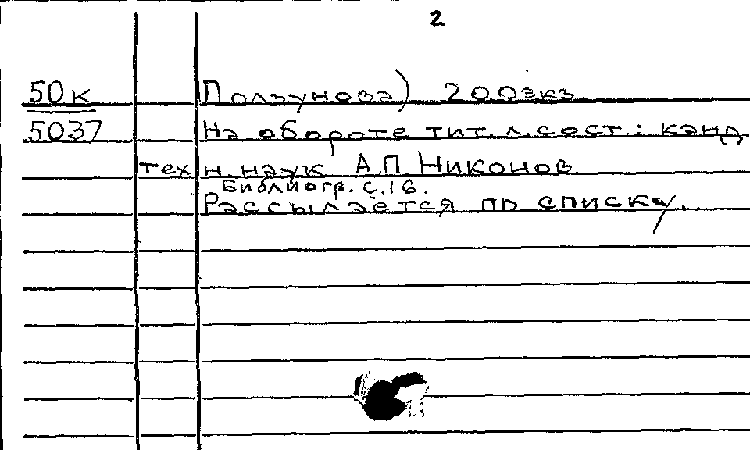 2
50к Ползунова) 200экз
5037 На обороте тит.л.сост.: канд
техн.наук А.П.Никонов
Библиогр. с.16.
Рассылается по списку.